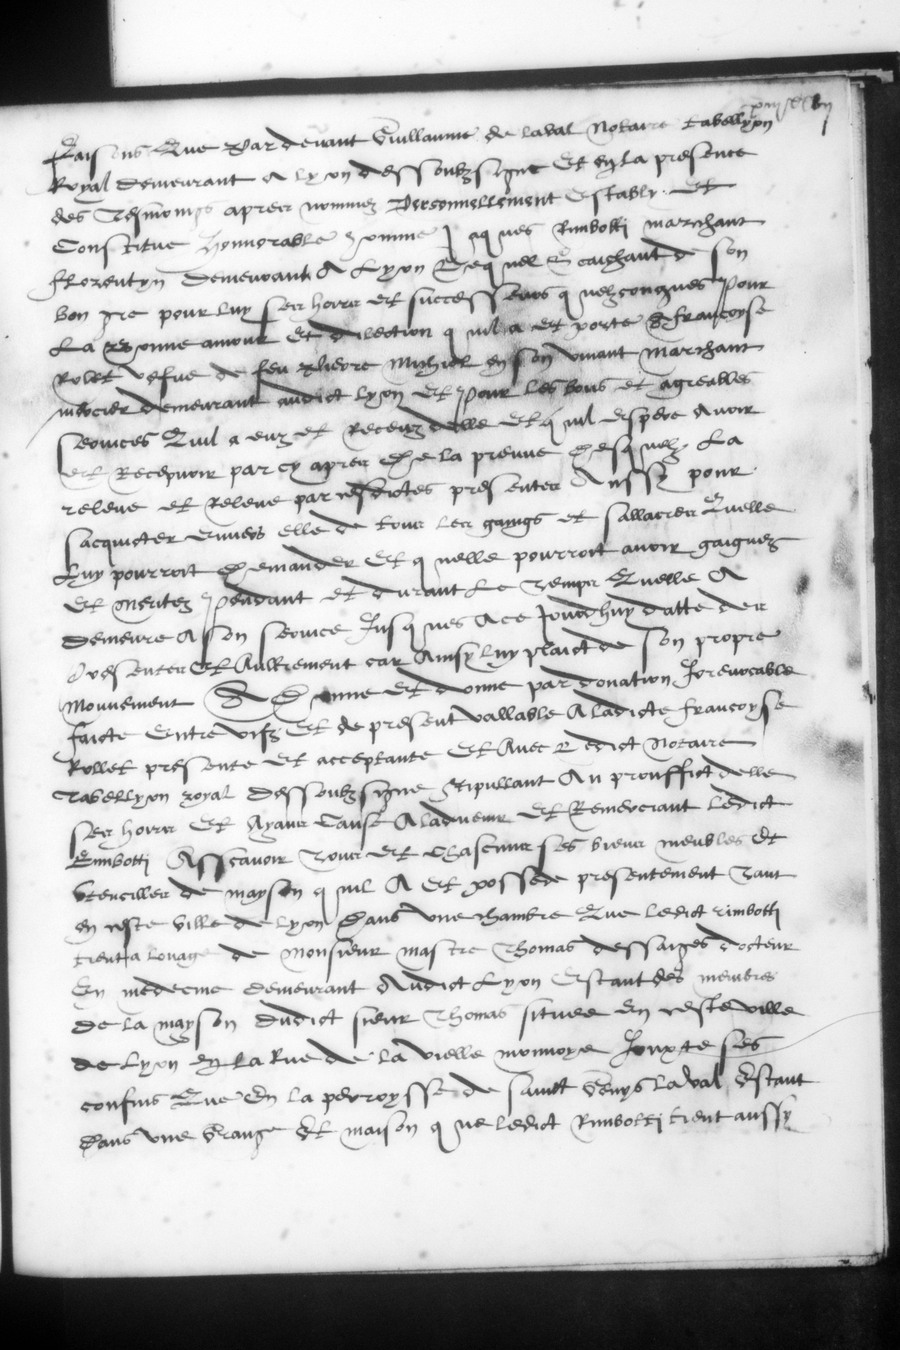 Faisons que par devant Guillaume de Laval notaire tabellyon
Royal demeurant a lyon dessoubzsigne et en la presence
des tesmoings apres nommez personnellement estably et
Constitue honnorable homme Jaques Rimbotti marchant
florentyn demeurant A Lyon lequel sachant de son
bon gre pour luy ses hoirs et successeurs quelzconques pour
La bonne amour et dilection quil a et porte a francoyse
Rolet vefve de feu en son vivant marchant
demeurant audict lyon et pour les bons et agreables
services Quil a euz et receuz delle et quil espere avoir
et recepvoir par cy apres de la preuve desquelz La
releve et releve par cesdictes presentes Aussy pour
sacquicter envers elle de tous les gaings et sallaires Quelle
Luy pourroit demander et quelle pourroit avoir gaignez
et meritez pendant et durant Le temps Quelle A
demeure A son service Jusques A ce Jourdhuy datte des
presentes Et Aultrement car Ainsy luy plaict de son propre
mouvement A Donne et donne par donation Irrevocable
faicte entre vifz et de present vallable A ladicte francoyse
Rollet presente et acceptante et Avec Ledict notaire
Tabellyon royal dessoubzsigne stipullant Au prouffict delle
ses hoirs et Ayans Cause A ladvenir et Remerciant ledict
Rimbotti Asscavoir Tous et chascuns ses biens meubles et
Utencilles de mayson quil A et possede presentement Tant
en ceste ville de lyon Dans une chambre Que ledict rimbotti
tient a louage de monsieur maistre Thomas dessaiges docteur
En medecine demeurant Audict Lyon Estant des membres
de la mayson dudict sieur Thomas situee En ceste ville
de Lyon en La Rue de la vielle monnoye Jouxte ses
confins Que En la perroysse de sainct Genys laval Estant
Dans une Grange et maison que ledict Rimbotti tient aussy